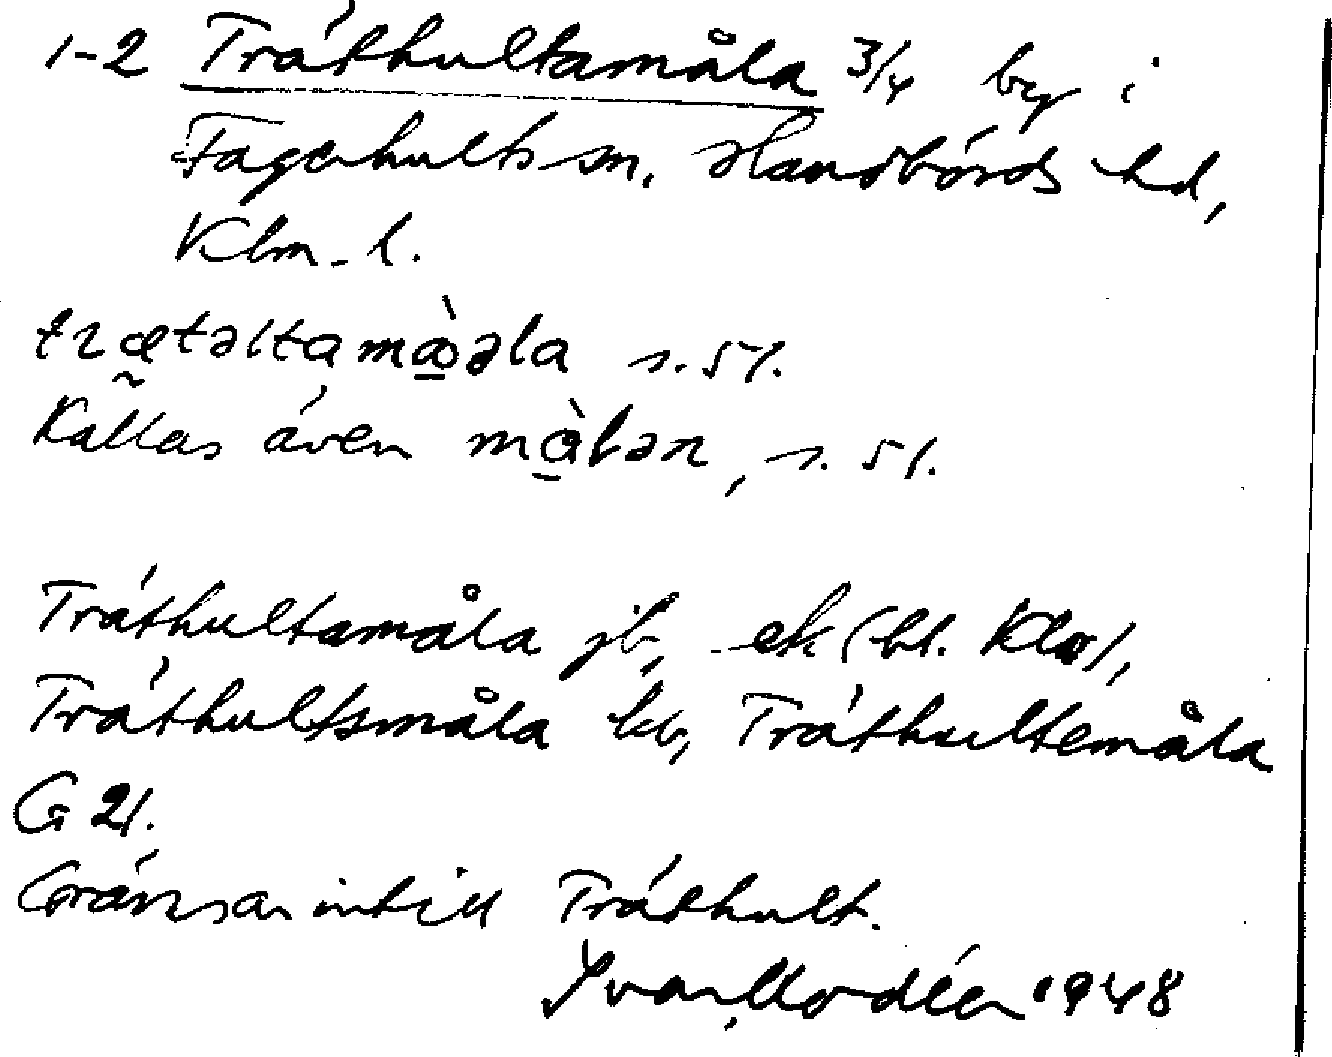 1-2 Träthultamåla 3/4 by i
Fagerhults sn, Handbörds hd,
Klm. l.
trætəltamàəla s. 51.
Kallas även màlən, s. 51.
Träthultamåla jb, ek (bl. Kla),
Träthultsmåla kb, Träthultemåla
G 21.
Gränsar intill Träthult.
Ivar Modéer 1948